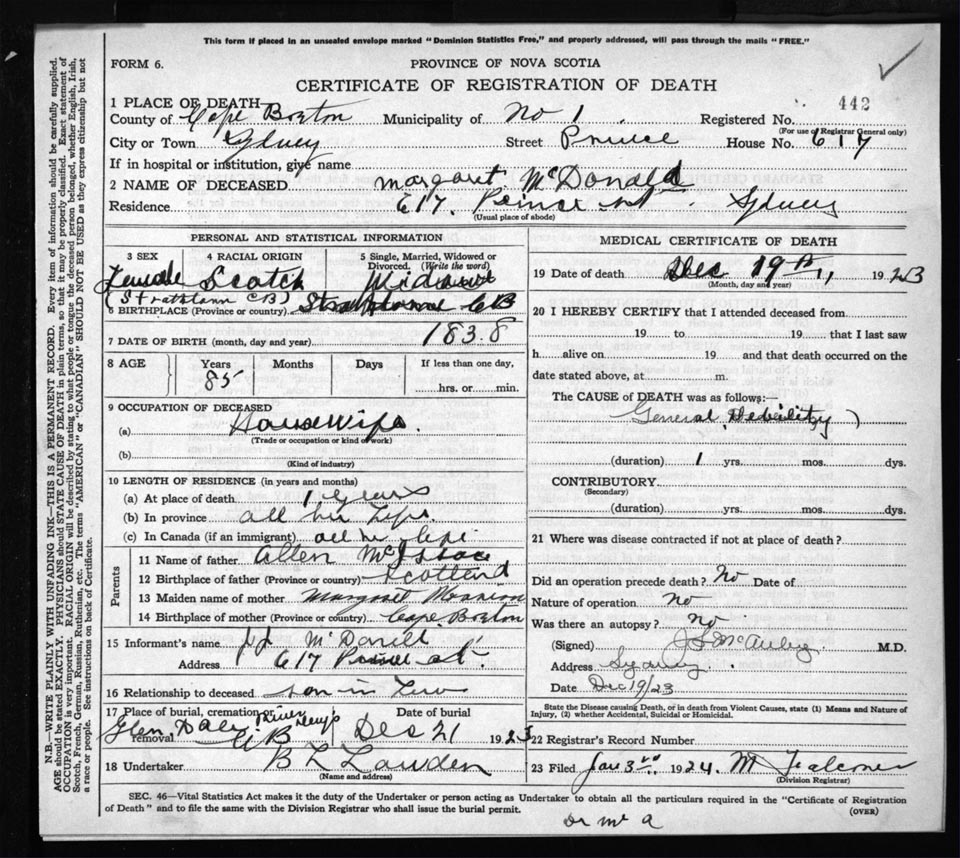 This form if placed in an unsealed envelope marked "Dominion Statistics Free," and properly addressed, will pass through the mails "FREE."
FORM 6.
PROVINCE OF NOVA SCOTIA
CERTIFICATE OF REGISTRATION OF DEATH
1 PLACE OF DEATH—
442
County of Cape Breton Municipality of No 1 Registered No.
(For use of Registrar General only)
City or Town Sydney Street Prince House No. 617
If in hospital or institution, give name
2 NAME OF DECEASED Margaret McDonald
Residence 617 Prince st Sydney
(Usual place of abode)
PERSONAL AND STATISTICAL INFORMATION
3 SEX 4 RACIAL ORIGIN 5 Single, Married, Widowed or Divorced. (Write the word)
Female Scotch Widow
(Strathlorn CB)
6 BIRTHPLACE (Province or country) CB
7 DATE OF BIRTH (month, day and year) 1838
8 AGE Years Months Days If less than one day,
85 hrs. or min.
9 OCCUPATION OF DECEASED
(a) Housewife
(Trade or occupation or kind of work)
(b)
(Kind of industry)
10 LENGTH OF RESIDENCE (in years and months)
(a) At place of death 1 years
(b) In province all her Life
(c) In Canada (if an immigrant) all her life
Parents
11 Name of father Allen McIsaac
12 Birthplace of father (Province or country) Scotland
13 Maiden name of mother Margaret
14 Birthplace of mother (Province or country) Cape Breton
15 Informant's name
Address 617 Prince st.
16 Relationship to deceased son in Law
17 Place of burial, cremation or removal Date of burial
Glen Dale River Denys CB Dec 21 1923
18 Undertaker
(Name and address)
MEDICAL CERTIFICATE OF DEATH
19 Date of death Dec 19th 1923
(Month, day and year)
20 I HEREBY CERTIFY that I attended deceased from
19 to 19 that I last saw
h alive on 19 and that death occurred on the
date stated above, at m.
The CAUSE OF DEATH was as follows:—
General Debility
(duration) 1 yrs. mos. dys.
CONTRIBUTORY
(Secondary)
(duration) yrs. mos. dys.
21 Where was disease contracted if not at place of death?
Did an operation precede death? No Date of
Nature of operation no
Was there an autopsy? no
(Signed) M.D.
Address Sydney
Date Dec 19/23
State the Disease causing Death, or in death from Violent Causes, state (1) Means and Nature of
Injury, (2) whether Accidental, Suicidal or Homicidal.
22 Registrar's Record Number
23 Filed Jan 3rd 1924. M Falconer
(Division Registrar)
SEC. 46—Vital Statistics Act makes it the duty of the Undertaker or person acting as Undertaker to obtain all the particulars required in the "Certificate of Registration
of Death" and to file the same with the Division Registrar who shall issue the burial permit. (OVER)
N.B.—WRITE PLAINLY WITH UNFADING INK—THIS IS A PERMANENT RECORD. Every item of information should be carefully supplied.
AGE should be stated EXACTLY. PHYSICIANS should STATE CAUSE OF DEATH in plain terms, so that it may be properly classified. Exact statement of
OCCUPATION is very important. RACIAL ORIGIN will be described by stating to what people or tongue the deceased person belonged, whether English, Irish,
Scotch, French, German, Russian, Ruthenian, etc. The terms "AMERICAN" or "CANADIAN" SHOULD NOT BE USED as they express citizenship but not
a race or people. See instructions on back of Certificate.